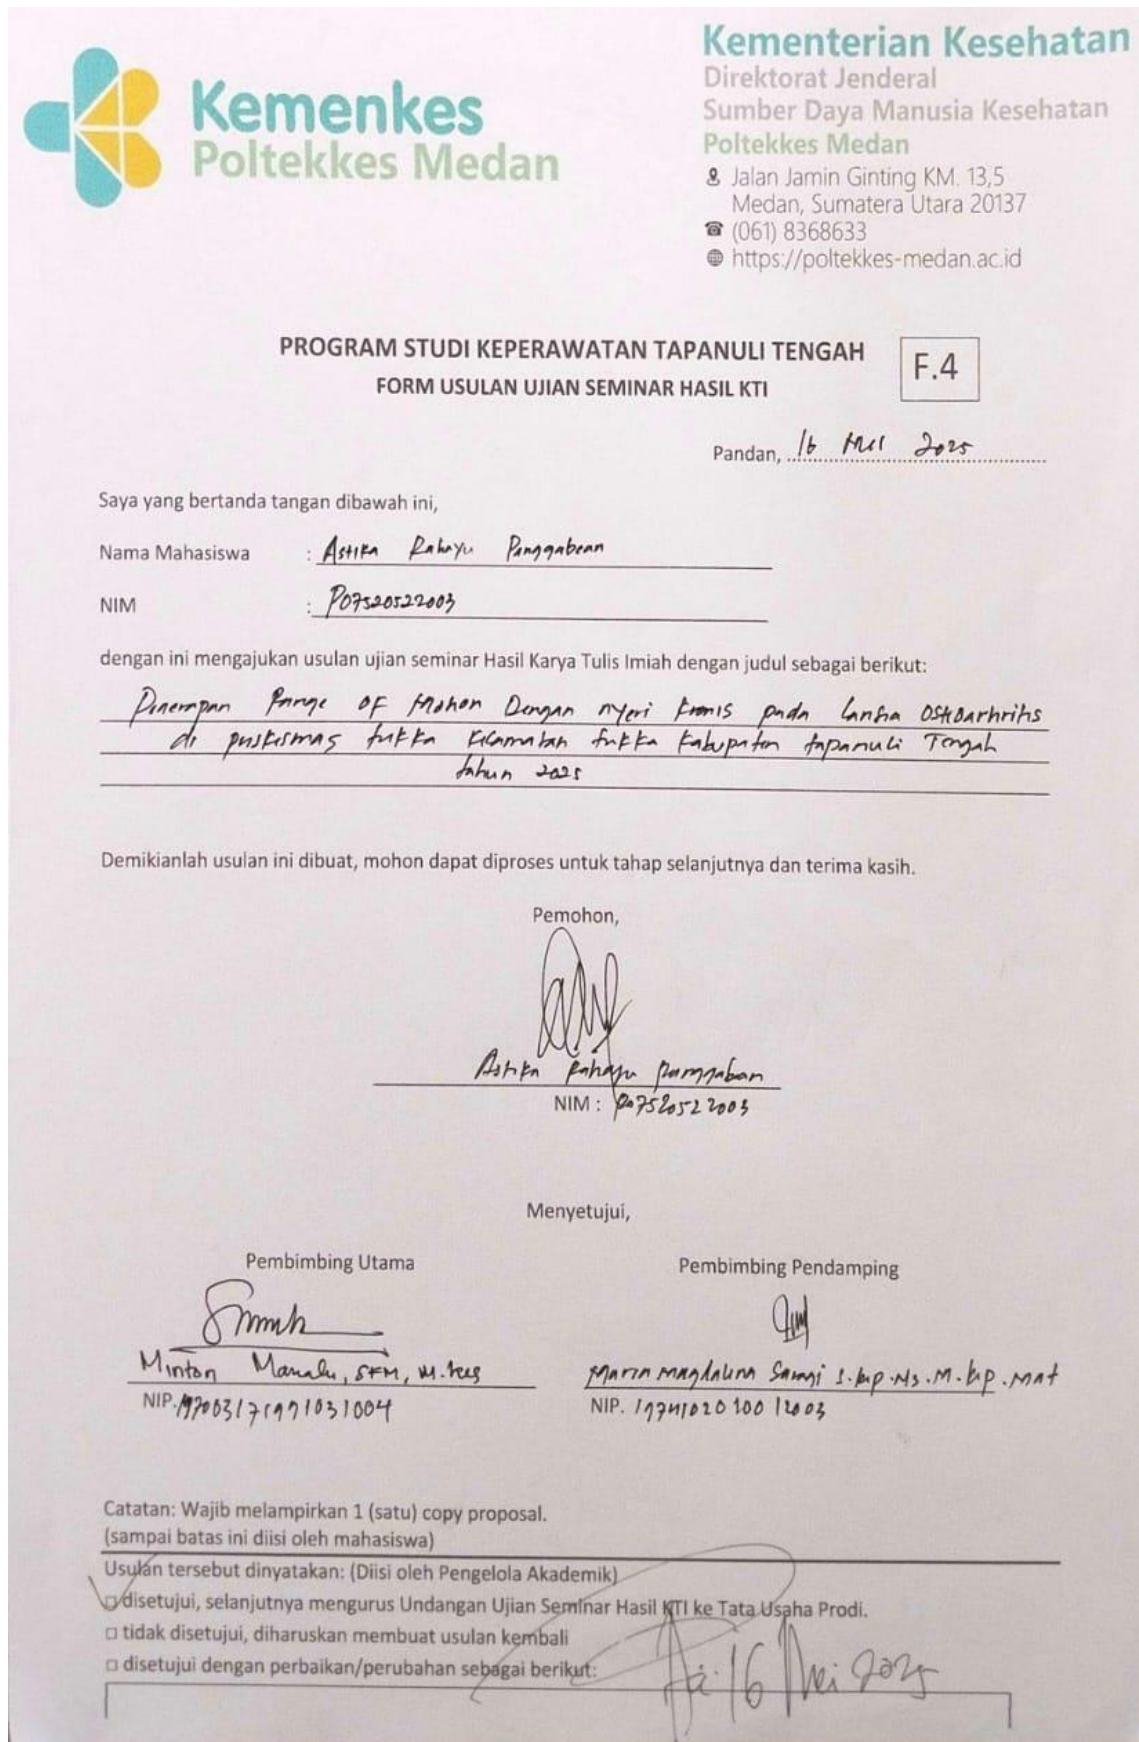 Kemenkes
Poltekkes Medan
Kementerian Kesehatan
Direktorat Jenderal
Sumber Daya Manusia Kesehatan
Poltekkes Medan
Jalan Jamin Ginting KM. 13,5
Medan, Sumatera Utara 20137
(061) 8368633
https://poltekkes-medan.ac.id
PROGRAM STUDI KEPERAWATAN TAPANULI TENGAH
F.4
FORM USULAN UJIAN SEMINAR HASIL KTI
Pandan, 16 Mei 2025
Saya yang bertanda tangan dibawah ini,
Nama Mahasiswa : Astika Rahayu Panggabean
NIM : P07520522003
dengan ini mengajukan usulan ujian seminar Hasil Karya Tulis Imiah dengan judul sebagai berikut:
Penerapan Range OF Motion Dengan nyeri kronis pada Lansia
di puskesmas tukka kecamatan tukka kabupaten tapanuli Tengah
tahun 2025
Demikianlah usulan ini dibuat, mohon dapat diproses untuk tahap selanjutnya dan terima kasih.
Pemohon,
Astika Rahayu
NIM : P07520522003
Menyetujui,
Pembimbing Utama
Pembimbing Pendamping
Minton Manalu, SKM, M.Kes
Maria Magdalena
NIP.
NIP.
Catatan: Wajib melampirkan 1 (satu) copy proposal.
(sampai batas ini diisi oleh mahasiswa)
Usulan tersebut dinyatakan: (Diisi oleh Pengelola Akademik)
disetujui, selanjutnya mengurus Undangan Ujian Seminar Hasil KTI ke Tata Usaha Prodi.
tidak disetujui, diharuskan membuat usulan kembali
disetujui dengan perbaikan/perubahan sebagai berikut:
16 Mei 2025